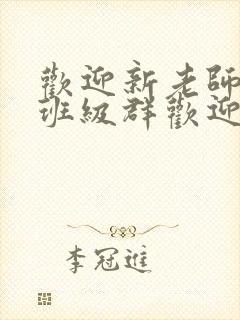 歡迎新老師
班級群歡迎
李冠進